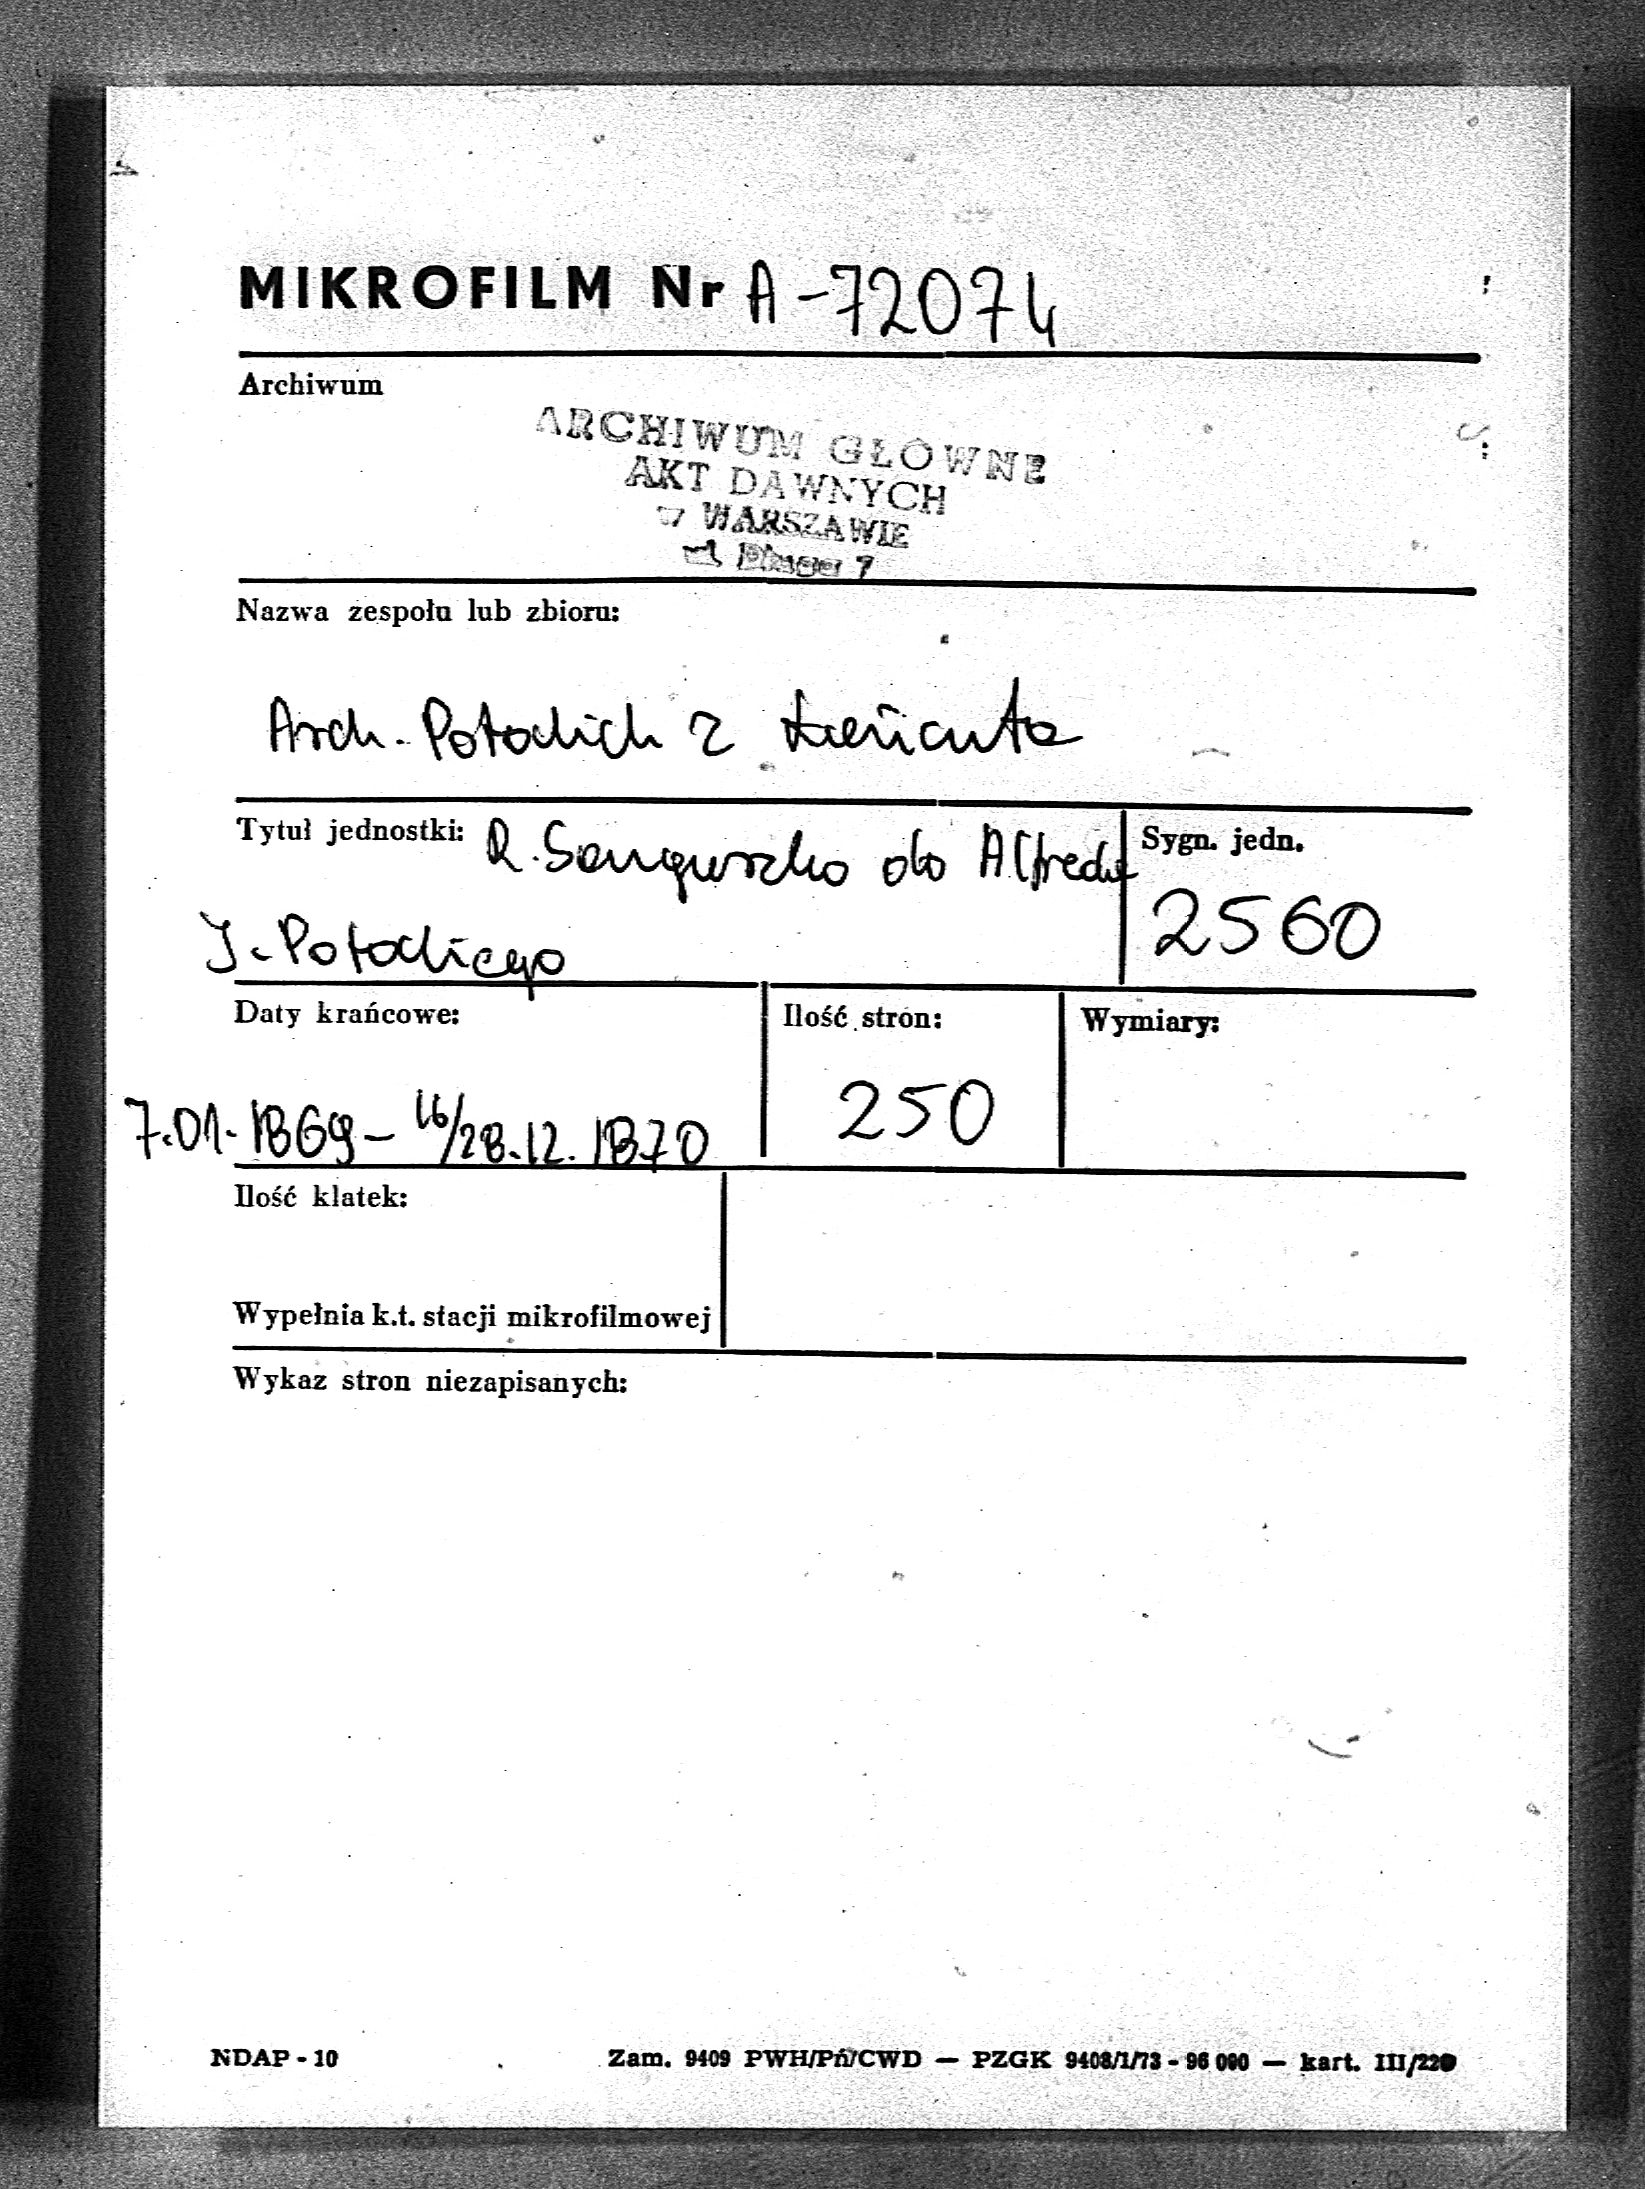 MIKROFILM Nr A-72074
Archiwum
ARCHIWUM GŁÓWNE
AKT DAWNYCH
w WARSZAWIE
ul. Długa 7
Nazwa zespołu lub zbioru:
Arch. Potockich z Łańcuta
Tytuł jednostki: R. Sanguszko do Alfreda
Sygn. jedn.
J. Potockiego
2560
Daty krańcowe:
Ilość stron:
Wymiary:
7.01.1869 – 16/28.12.1870
250
Ilość klatek:
Wypełnia k.t. stacji mikrofilmowej
Wykaz stron niezapisanych:
NDAP - 10
Zam. 9409 PWH/Pń/CWD — PZGK 9408/1/73 - 96 000 — kart. III/220